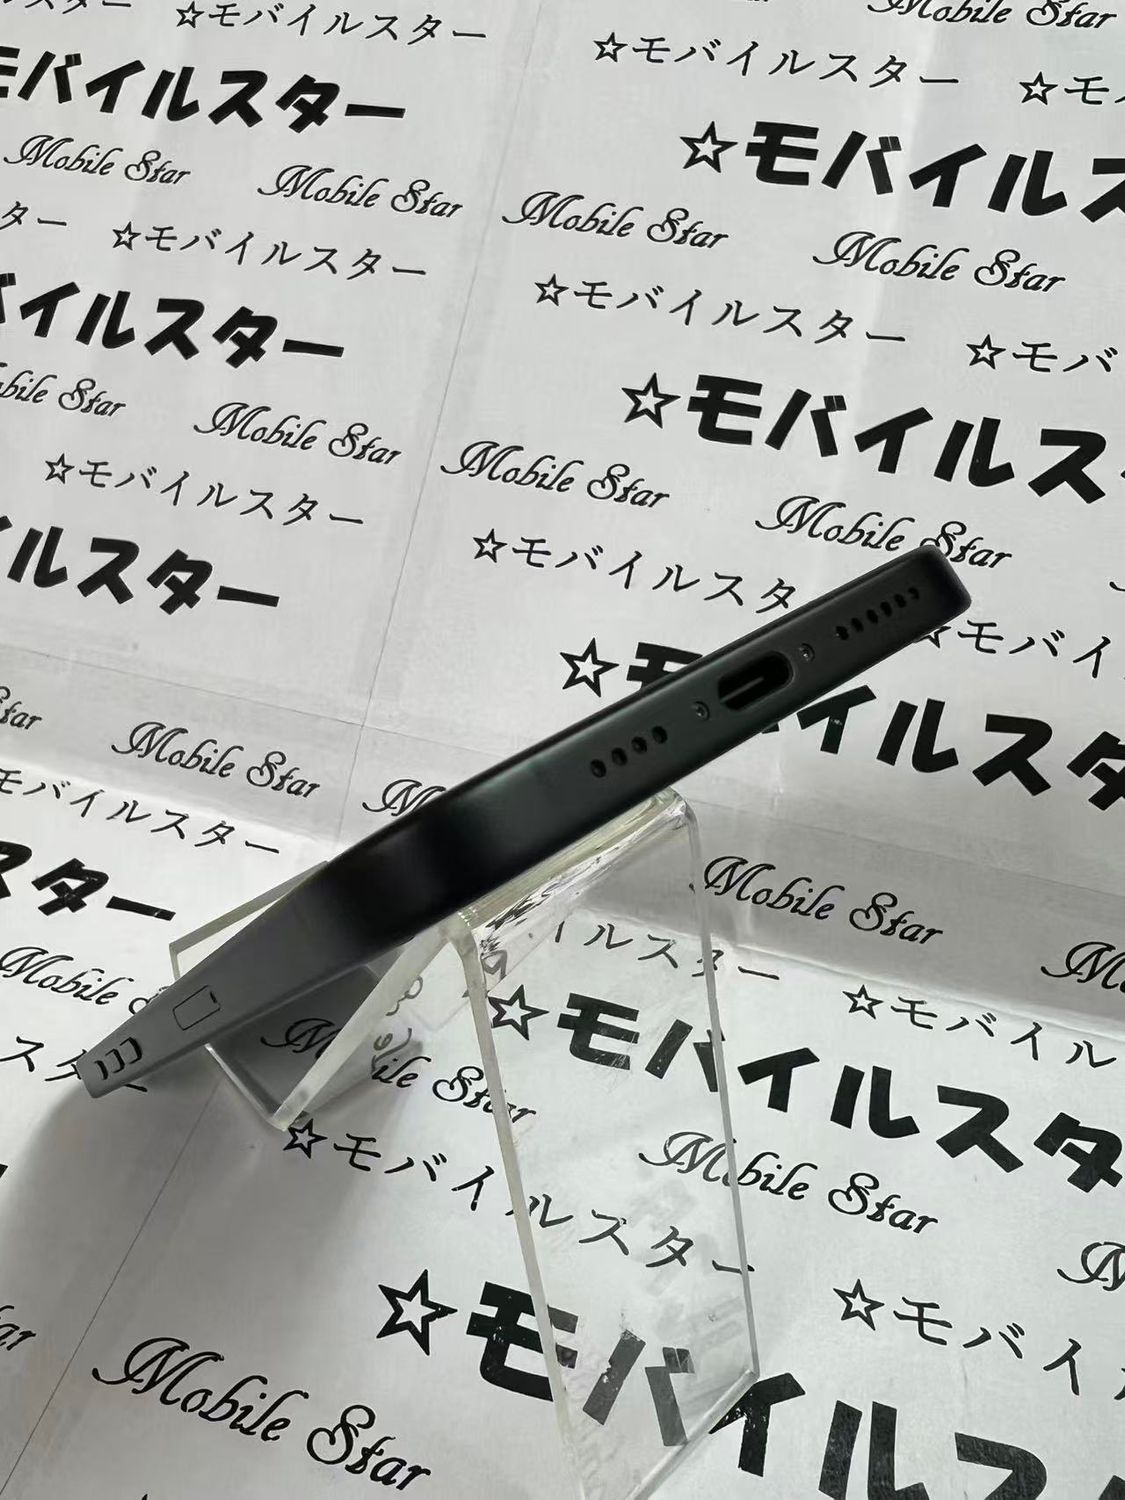 ☆モバイルスター
☆モバイルスター ☆モ
Mobile Star
モバイルスター
☆モバイルス
Mobile Star Mobile Star Mobile Star Mobile Star
ター ☆モバイルスター
☆モバイルスター ☆モバ
バイルスター
☆モバイルス
bile Star Mobile Star Mobile Star Mobile Star
☆モバイルスター
☆モバイルスタ モバイ
イルスター
☆モ イルスタ
Mobile Star
モバイルスター
スター
Mobile Star
Mobile
イルスター ☆モバイル
☆モバイルスタ
ile Star
Mobile Star
☆モバイルスター
☆モバイ
☆モバイルス
Mobile Star